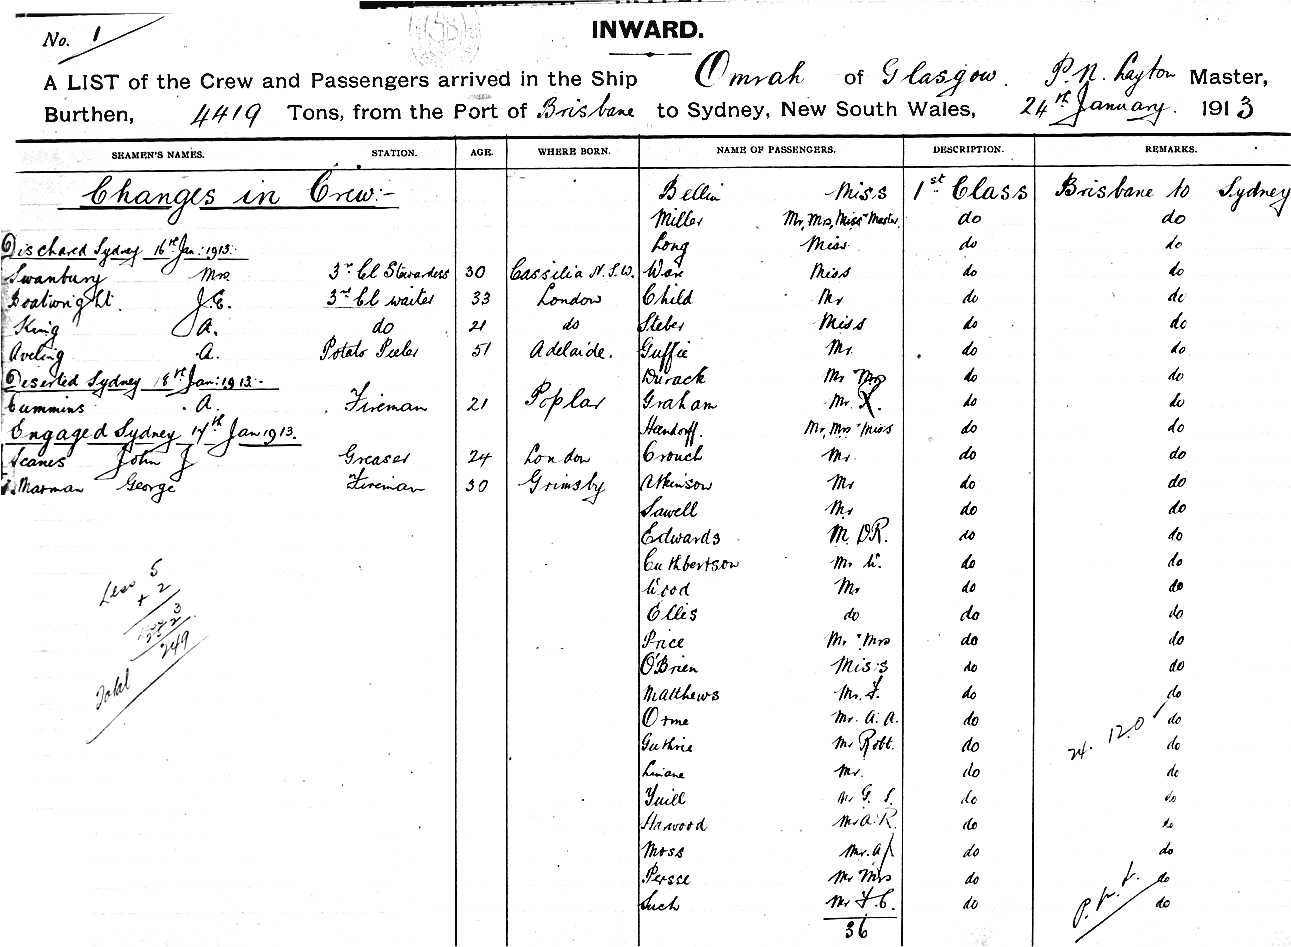 No. 1
INWARD.
A LIST of the Crew and Passengers arrived in the Ship Omrah of Glasgow. P. N. Layton Master,
Burthen, 4419 Tons, from the Port of Brisbane to Sydney, New South Wales, 24th January. 1913
SEAMEN'S NAMES. STATION. AGE. WHERE BORN. NAME OF PASSENGERS. DESCRIPTION. REMARKS.
Changes in Crew:- Bellin Miss 1st Class Brisbane to Sydney
Miller Mr, Mrs, Miss " Master do do
Dischared Sydney 16th Jan: 1913:- Long Miss do do
Swanbury Mrs 3r Cl Stewardess 30 Cassilia N.S.W. Ware Miss do do
Boatwright. J.E. 3rd Cl waiter 33 London Child Mr do do
King A. do 21 do Steber Miss do do
Aveling A. Potato Peeler 51 Adelaide. Guffie Mr. do do
Deserted Sydney 18th Jan: 1913:- Durack Mr " Mrs do do
Cummins A. Fireman 21 Poplar Graham Mr. X. do do
Engaged Sydney 17th Jan 1913. Handorff. Mr, Mrs " Miss do do
Scanes John J Greaser 24 London Crouch Mr. do do
Marman George Fireman 30 Grimsby Atkinson Mr do do
Sawell Mr do do
Edwards M. DR. do do
Less 5 Cuthbertson Mr W. do do
+ 2 Wood Mr do do
3 Elles do do do
252
249 Price Mr. " Mrs do do
Total O'Brien Miss do do
Matthews Mr. F. do do
Orme Mr. A. A. do do
24. 12.0
Guthrie Mr Robt. do do
Linane Mr. do do
Yuill Mr G. S. do do
Harwood Mr A. R. do do
Moss Mr. A do do
Persse Mr Mrs do do
Such Mr F. C. do do
36